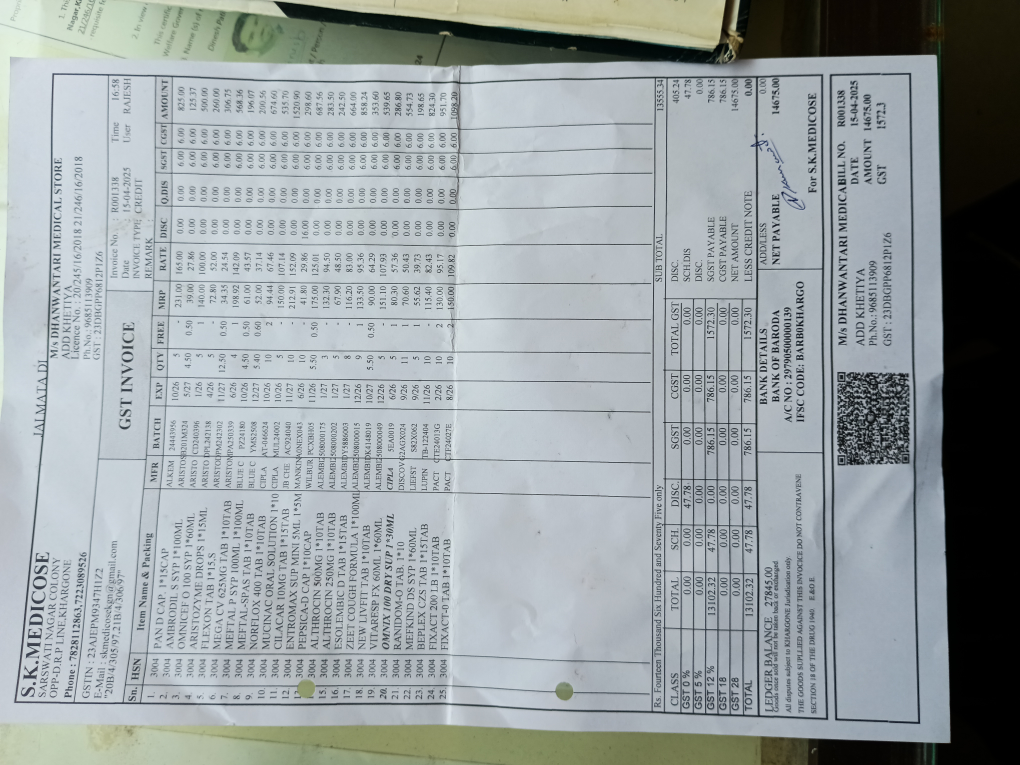 JAI MATA DI
S.K.MEDICOSE
SARSWATI NAGAR COLONY
OPP-D.R.P LINE,KHARGONE
Phone : 7828112863,7223089526
GSTIN : 23AJEPM9347H1Z2
E-Mail : skmedicoseskgn@gmail.com
"20B/4/305/97,21B/4/306/97"
M/s DHANWANTARI MEDICAL STORE
ADD KHETIYA
Licence No. : 20/245/16/2018 21/246/16/2018
Ph.No.: 9685113909
GST : 23DBGPP6812P1Z6
GST INVOICE
Invoice No. : R001338 Time 16:58
Date : 15-04-2025 User RAJESH
INVOICE TYPE CREDIT
REMARK :
Sn. HSN Item Name & Packing MFR BATCH EXP QTY FREE MRP RATE DISC Q.DIS SGST CGST AMOUNT
1. 3004 PAN D CAP. 1*15CAP ALKEM 24443956 10/26 5 - 231.00 165.00 0.00 0.00 6.00 6.00 825.00
2. 3004 AMBRODIL S SYP 1*100ML ARISTO B201M324 5/27 4.50 0.50 39.00 27.86 0.00 0.00 6.00 6.00 125.37
3. 3004 OMNICEF O 100 SYP 1*60ML ARISTO CD240396 1/26 5 1 140.00 100.00 0.00 0.00 6.00 6.00 500.00
4. 3004 ARISTOZYME DROPS 1*15ML ARISTO DPL242118 4/26 5 - 72.80 52.00 0.00 0.00 6.00 6.00 260.00
5. 3004 FLEXON TAB 1*15.S ARISTO PM242702 11/27 12.50 0.50 34.35 24.54 0.00 0.00 6.00 6.00 306.75
6. 3004 MEGA CV 625MG TAB 1*10TAB ARISTO PA250339 6/26 4 1 198.92 142.09 0.00 0.00 6.00 6.00 568.36
7. 3004 MEFTAL P SYP 100ML 1*100ML BLUE C PZ24180 10/26 4.50 0.50 61.00 43.57 0.00 0.00 6.00 6.00 196.07
8. 3004 MEFTAL-SPAS TAB 1*10TAB BLUE C YMS2508 12/27 5.40 0.60 52.00 37.14 0.00 0.00 6.00 6.00 200.56
9. 3004 NORFLOX 400 TAB 1*10TAB CIPLA AT-246624 10/26 10 2 94.44 67.46 0.00 0.00 6.00 6.00 674.60
10. 3004 MUCINAC ORAL SOLUTION 1*10 CIPLA MUL24002 10/26 5 - 150.00 107.14 0.00 0.00 6.00 6.00 535.70
11. 3004 CILACAR 10MG TAB 1*15TAB JB CHE AC924040 11/27 10 - 212.91 152.09 0.00 0.00 6.00 6.00 1520.90
12. 3004 ENTROMAX SUP MINI 5ML 1*5M MANKIN 6/26 10 - 41.80 29.86 16.00 0.00 6.00 6.00 298.60
3004 PEPSICA-D CAP 1*10CAP WILBUR PCXBH05 11/26 5.50 0.50 175.00 125.01 0.00 0.00 6.00 6.00 687.56
3004 ALTHROCIN 500MG 1*10TAB ALEMBI 2508000175 1/27 3 - 132.30 94.50 0.00 0.00 6.00 6.00 283.50
15. 3004 ALTHROCIN 250MG 1*10TAB ALEMBI 2508000202 1/27 5 - 67.90 48.50 0.00 0.00 6.00 6.00 242.50
16. 3004 ESOLEMBIC D TAB 1*15TAB ALEMBI DY5886003 1/27 8 - 116.20 83.00 0.00 0.00 6.00 6.00 664.00
17. 3004 ZEET COUGH FORMULA 1*100ML ALEMBI 2508000015 12/26 9 1 133.50 95.36 0.00 0.00 6.00 6.00 858.24
18. 3004 NEW LIVFIT TAB 1*10TAB ALEMBI DK4148019 10/27 5.50 0.50 90.00 64.29 0.00 0.00 6.00 6.00 353.60
19. 3004 VITARESP FX 60ML 1*60ML ALEMBI 2508000049 12/26 5 - 151.10 107.93 0.00 0.00 6.00 6.00 539.65
20. 3004 OMNIX 100 DRY SUP 1*30ML CIPLA 5EA0019 6/26 5 1 80.30 57.36 0.00 0.00 6.00 6.00 286.80
21. 3004 RANIDOM-O TAB. 1*10 DISCOV 2AGX024 9/26 11 1 70.60 50.43 0.00 0.00 6.00 6.00 554.73
22. 3004 MEFKIND DS SYP 1*60ML LIEFST SR2X062 9/26 5 1 55.62 39.73 0.00 0.00 6.00 6.00 198.65
23. 3004 REPLEX CZS TAB 1*15TAB LUPIN TB-122404 11/26 10 - 115.40 82.43 0.00 0.00 6.00 6.00 824.30
24. 3004 FIXACT 200 LB 1*10TAB PACT CTE24013G 2/26 10 2 130.00 95.17 0.00 0.00 6.00 6.00 951.70
25. 3004 FIXACT-0 TAB 1*10TAB PACT 8/26 10 2 150.00 109.82 0.00 0.00 6.00 6.00 1098.20
Rs. Fourteen Thousand Six Hundred and Seventy Five only
CLASS TOTAL SCH. DISC. SGST CGST TOTAL GST
GST 0 % 0.00 0.00 47.78 0.00 0.00 0.00
GST 5 % 0.00 0.00 0.00 0.00 0.00 0.00
GST 12 % 13102.32 47.78 0.00 786.15 786.15 1572.30
GST 18 0.00 0.00 0.00 0.00 0.00 0.00
GST 28 0.00 0.00 0.00 0.00 0.00 0.00
TOTAL 13102.32 47.78 47.78 786.15 786.15 1572.30
SUB TOTAL 13555.34
DISC. 405.24
SCH.DIS 47.78
DISC. 0.00
SGST PAYABLE 786.15
CGST PAYABLE 786.15
NET AMOUNT 14675.00
LESS CREDIT NOTE 0.00
ADD/LESS 0.00
NET PAYABLE 14675.00
LEDGER BALANCE 27845.00
Goods once sold will not be taken back or exchanged
All disputes subject to KHARGONE Jurisdication only.
THE GOODS SUPLLIED AGAINST THIS INVOICE DO NOT CONTRAVENE
SECTION 18 OF THE DRUG 1940. E.&O.E.
BANK DETAILS
BANK OF BARODA
A/C NO : 29790500000139
IFSC CODE: BARB0KHARGO
For S.K.MEDICOSE
M/s DHANWANTARI MEDICA
ADD KHETIYA
Ph.No.: 9685113909
GST : 23DBGPP6812P1Z6
BILL NO. R001338
DATE 15-04-2025
AMOUNT 14675.00
GST 1572.3